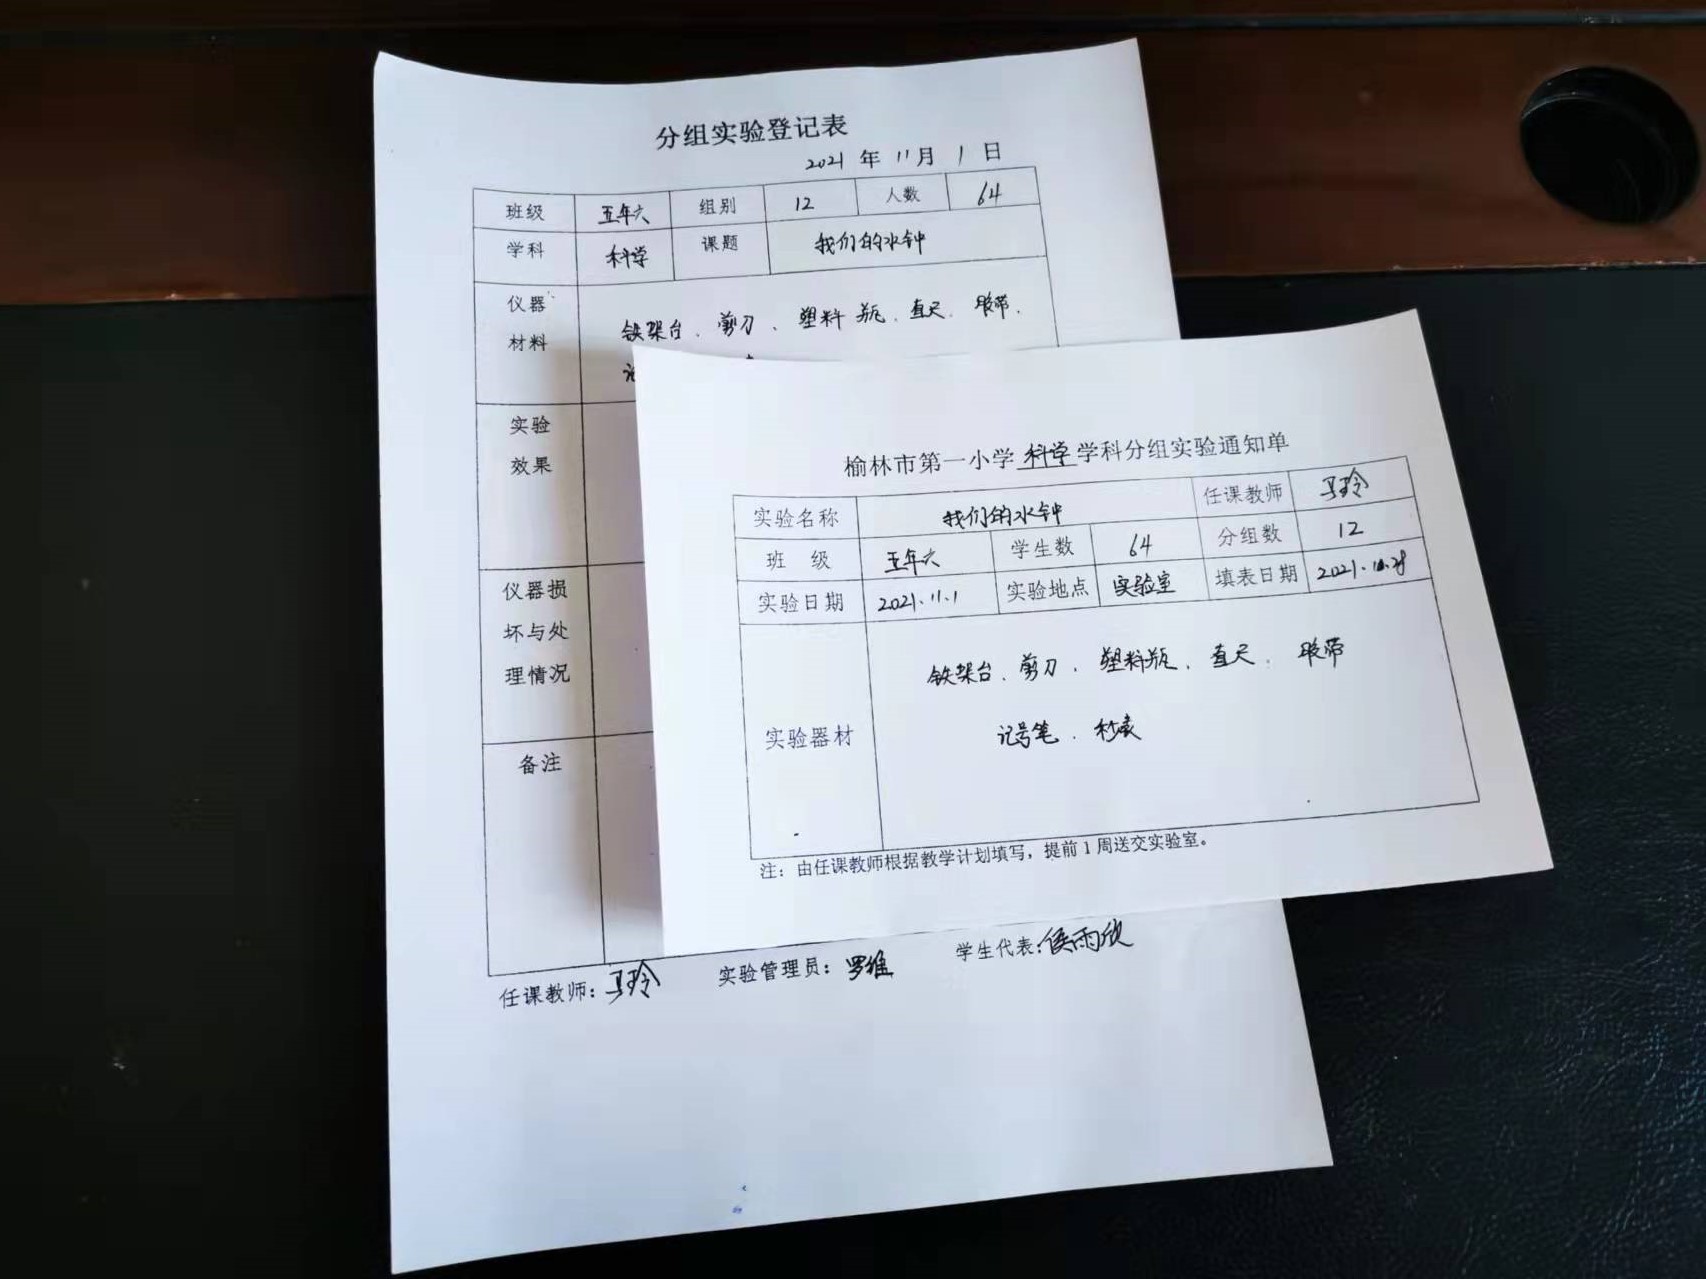 分组实验登记表
2021 年 11 月 1 日
班级 五年六 组别 12 人数 64
学科 科学 课题 我们的水钟
仪器材料 铁架台、剪刀、塑料瓶、直尺、胶带、
实验效果
仪器损坏与处理情况
备注
任课教师：马玲 实验管理员：罗维 学生代表：侯雨欣
榆林市第一小学科学学科分组实验通知单
实验名称 我们的水钟 任课教师 马玲
班 级 五年六 学生数 64 分组数 12
实验日期 2021.11.1 实验地点 实验室 填表日期 2021.10.28
实验器材 铁架台、剪刀、塑料瓶、直尺、胶带
记号笔、秒表
注：由任课教师根据教学计划填写，提前1周送交实验室。